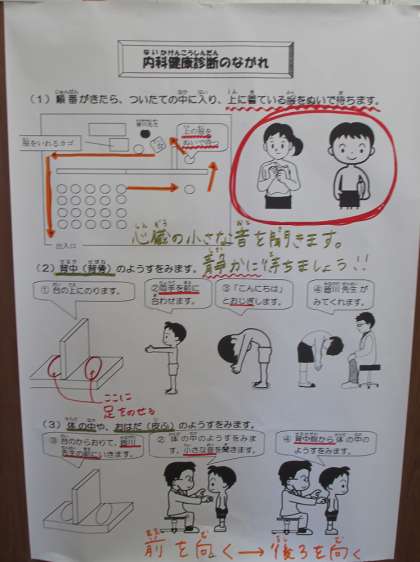 内科健康診断のながれ
(1) 順番がきたら、ついたての中に入り、上に着ている服をぬいで待ちます。
服をいれるカゴ
上の服を
ぬいで
出入口
心臓の小さな音を聞きます。
静かに待ちましょう!!
(2) 背中（背骨）のようすをみます。
① 台の上にのります。
② 両手を前に
合わせます。
③ 「こんにちは」
とおじぎします。
④ 皆川先生が
みてくれます。
ここに
足をのせる
(3) 体の中や、おはだ（皮ふ）のようすをみます。
① 台のからおりて、皆川
先生の前にいきます。
② 体の中のようすをみま
す。小さな音を聞きます。
④ 背中側から体の中の
ようすをみます。
前を向く→後ろを向く